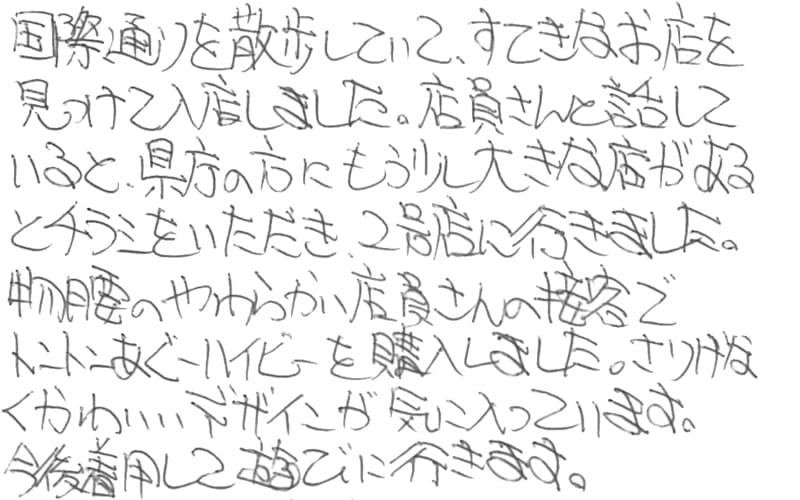 国際通りを散歩していて、すてきなお店を
見つけて入店しました。店員さんと話して
いると、県庁の方にもう少し大きな店がある
とチラシをいただき、2号店に行きました。
物腰のやわらかい店員さんの接客で
トントンあぐーハイビーを購入しました。さりげな
くかわいいデザインが気に入っています。
今後着用して遊びに行きます。